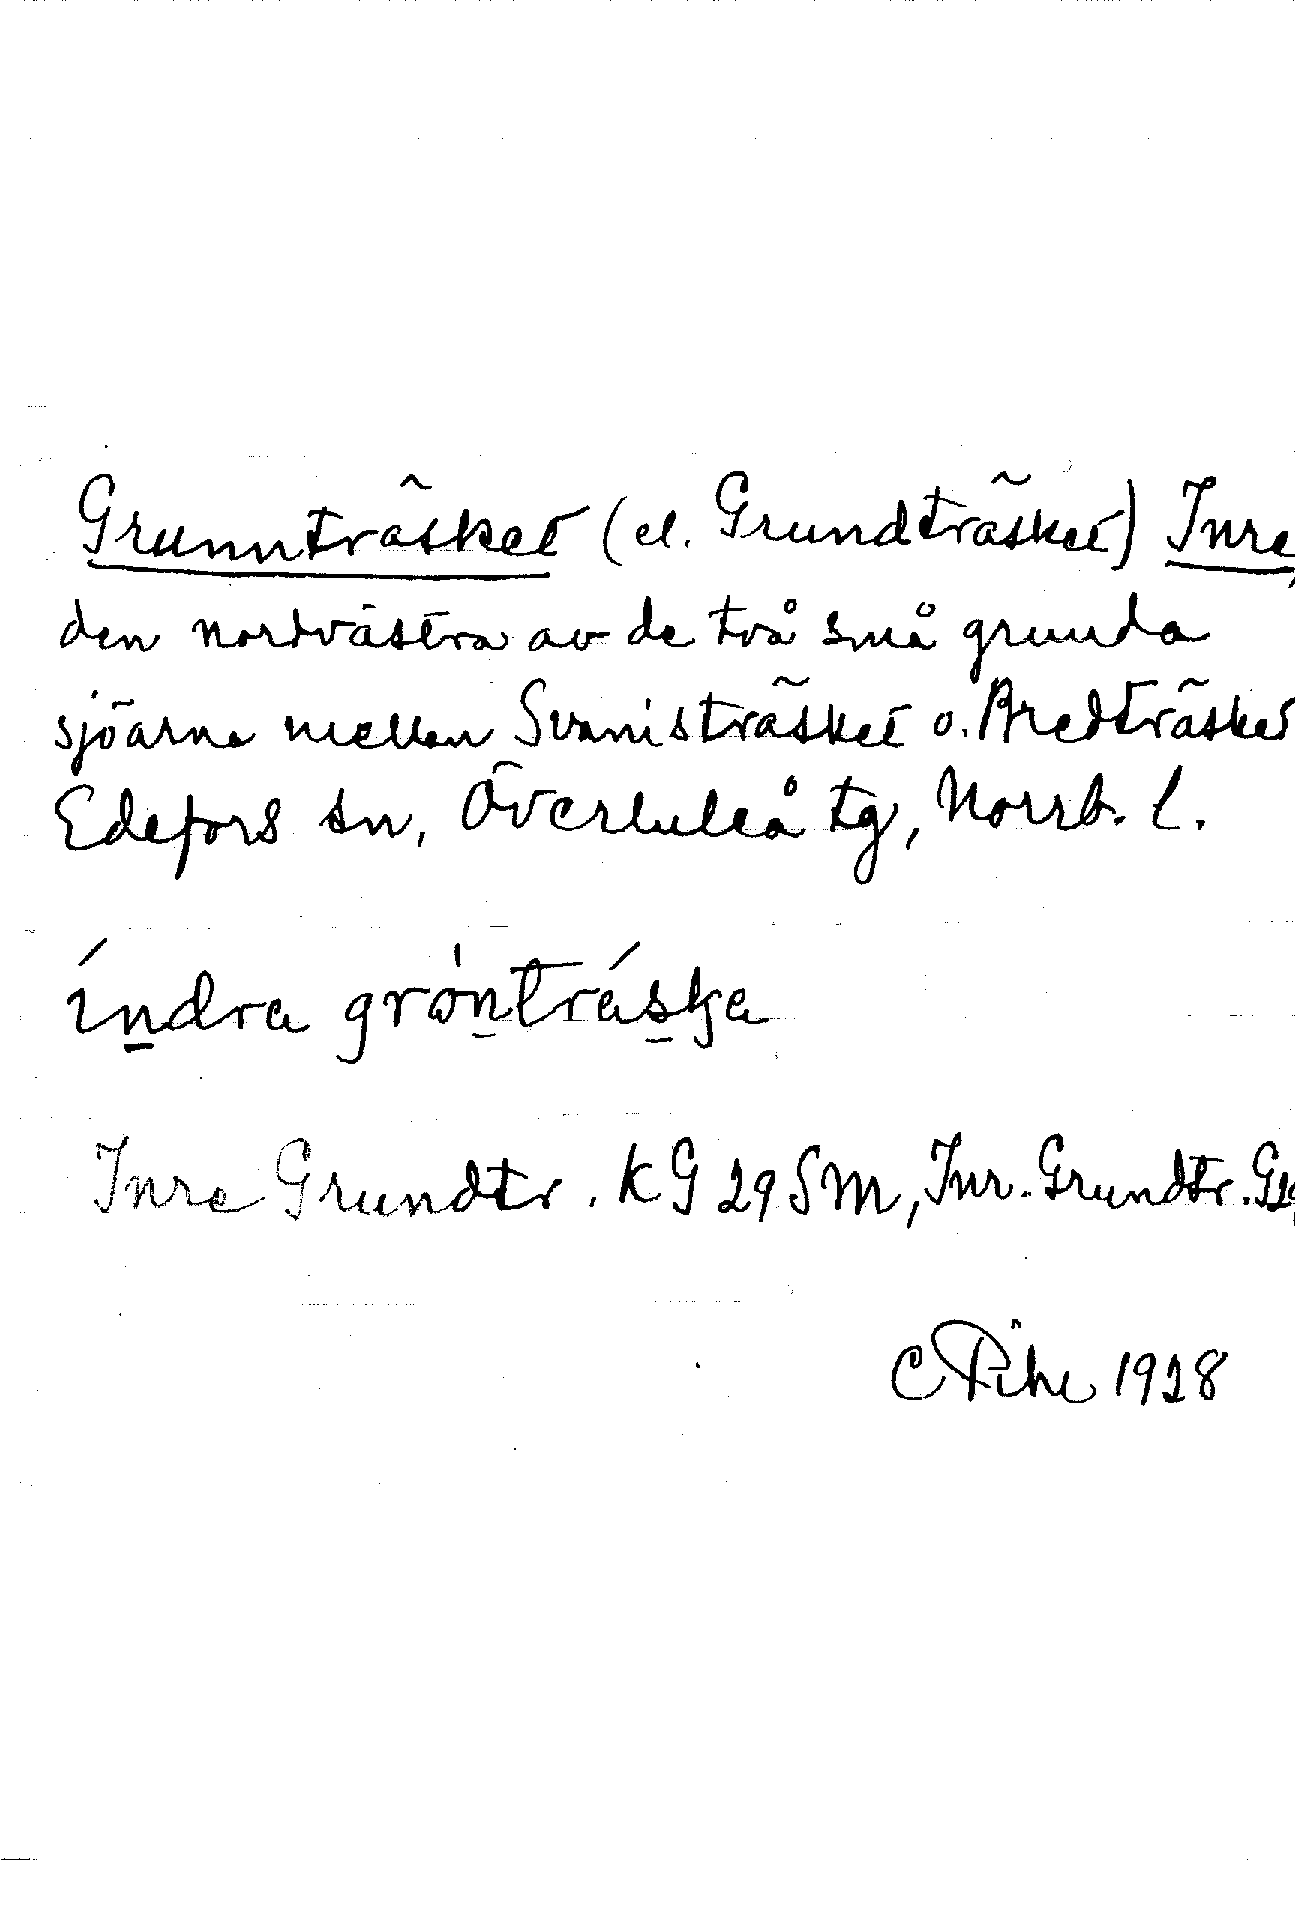 Grunnträsket (el. Grundträsket) Inre,
den nordvästra av de två små grunda
sjöarna mellan Svanisträsket o. Bredträsket
Edefors sn, Överluleå tg, Norrb. l.
índra grȯntráska
Inre Grundtr. KG 29 SM, Inr. Grundtr.
C Pihl 1928